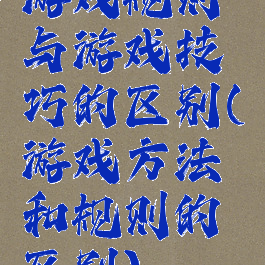 游戏规则
与游戏技
巧的区别(
游戏方法
和规则的
区别)